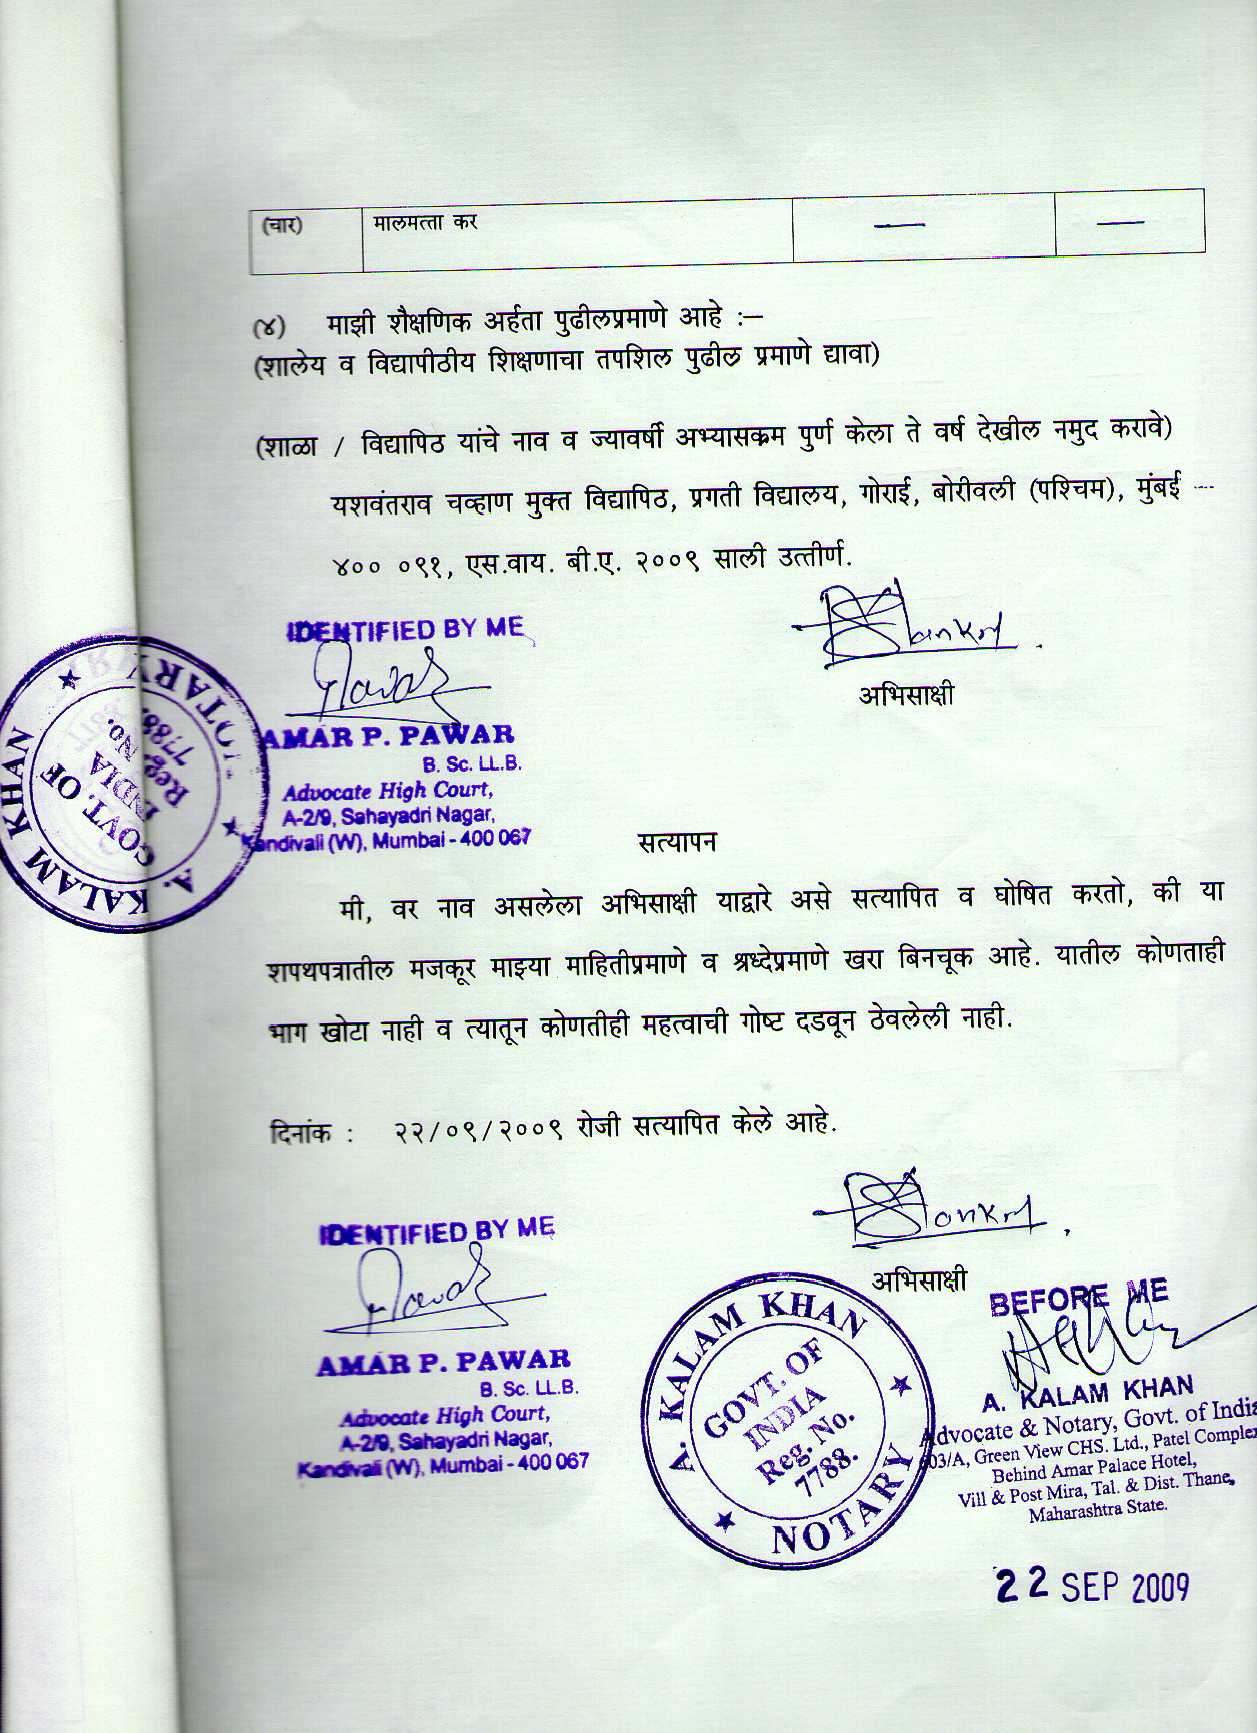 (चार) मालमत्ता कर — —
(४) माझी शैक्षणिक अर्हता पुढीलप्रमाणे आहे :—
(शालेय व विद्यापीठीय शिक्षणाचा तपशिल पुढील प्रमाणे द्यावा)
(शाळा / विद्यापिठ यांचे नाव व ज्यावर्षी अभ्यासक्रम पुर्ण केला ते वर्ष देखील नमुद करावे)
यशवंतराव चव्हाण मुक्त विद्यापिठ, प्रगती विद्यालय, गोराई, बोरीवली (पश्चिम), मुंबई ---
४०० ०९१, एस.वाय. बी.ए. २००९ साली उत्तीर्ण.
IDENTIFIED BY ME
अभिसाक्षी
AMAR P. PAWAR
B. Sc. LL.B.
Advocate High Court,
A-2/9, Sahayadri Nagar,
Kandivali (W), Mumbai - 400 067
A. KALAM KHAN
NOTARY
GOVT. OF
INDIA
Reg. No.
7788.
सत्यापन
मी, वर नाव असलेला अभिसाक्षी याद्वारे असे सत्यापित व घोषित करतो, की या
शपथपत्रातील मजकूर माझ्या माहितीप्रमाणे व श्रध्देप्रमाणे खरा बिनचूक आहे. यातील कोणताही
भाग खोटा नाही व त्यातून कोणतीही महत्वाची गोष्ट दडवून ठेवलेली नाही.
दिनांक : २२/०९/२००९ रोजी सत्यापित केले आहे.
IDENTIFIED BY ME
अभिसाक्षी
AMAR P. PAWAR
B. Sc. LL.B.
Advocate High Court,
A-2/9, Sahayadri Nagar,
Kandivali (W), Mumbai - 400 067
A. KALAM KHAN
NOTARY
GOVT. OF
INDIA
Reg. No.
7788.
BEFORE ME
A. KALAM KHAN
Advocate & Notary, Govt. of India
603/A, Green View CHS. Ltd., Patel Complex
Behind Amar Palace Hotel,
Vill & Post Mira, Tal. & Dist. Thane,
Maharashtra State.
22 SEP 2009